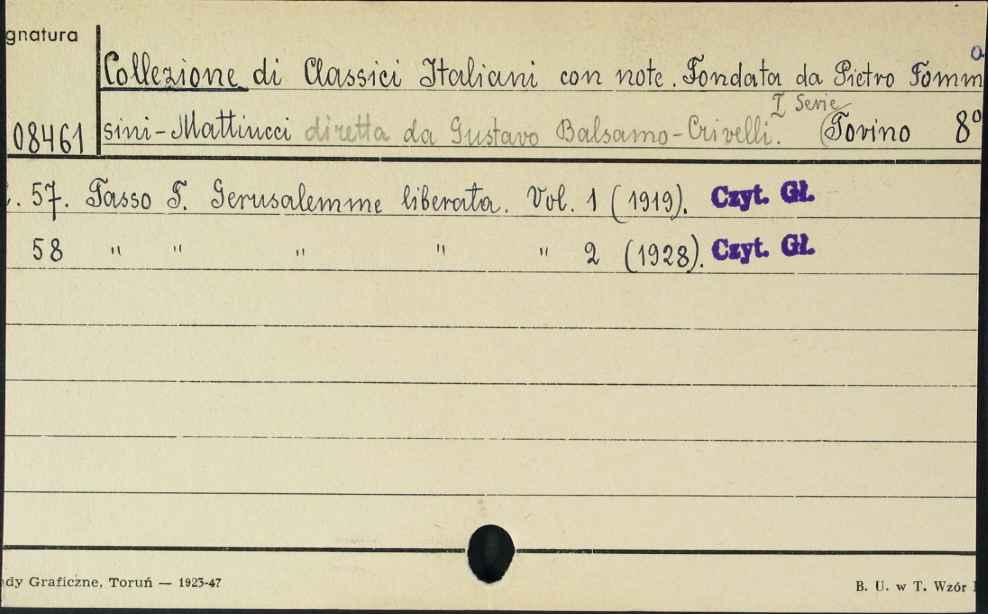 gnatura
Collezione di Classici Italiani con note. Fondata da Pietro Fomm
a
I Serie
08461 sini-Mattiucci diretta da Gustavo Balsamo-Crivelli. (Torino 8°
. 57. Tasso T. Gerusalemme liberata. Vol. 1 (1919). Czyt. Gł.
58 " " " " " 2 (1928). Czyt. Gł.
dy Graficzne, Toruń — 1923-47
B. U. w T. Wzór